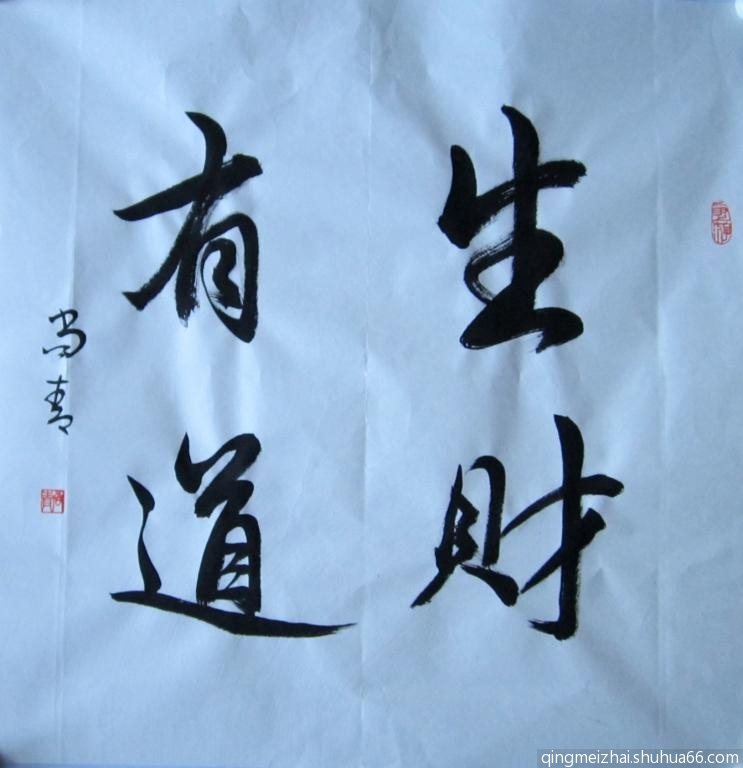 生財
有道
尚青
qingmeizhai.shuhua66.com